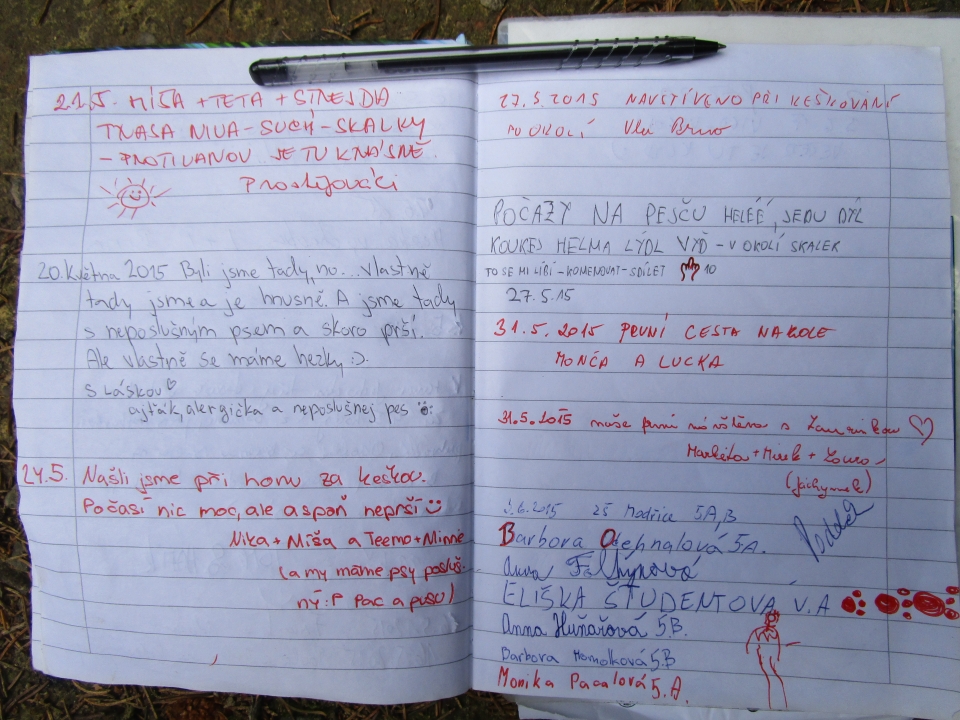 21.5. MÍŠA + TETA + STREJDA
TRASA NIVA-SUCHÝ-SKALKY
- PROTIVANOV JE TU KRÁSNĚ.
Prostějováci
20. května 2015 Byli jsme tady, no... vlastně
tady jsme a je hnusně. A jsme tady
s neposlušným psem a skoro prší.
Ale vlastně se máme hezky :).
S LÁSKOU ♡
ajťák, alergička a neposlušnej pes
24.5. Našli jsme při honu za keškou.
Počasí nic moc, ale aspoň neprší
Nika + Míša a Teemo + Minnie
(a my máme psy posluš.
ný :P Pac a pusu)
27.5.2015 NAVŠTÍVENO PŘI KEŠKOVÁNÍ
PO OKOLÍ Brno
POČAZY NA PEJSČU HELÉÉ, JEDU DÝL
KOUKEJ HELMA LÝDL VYĎ - V OKOLÍ SKALEK
TO SE MI LÍBÍ - KOMENOVAT - SDÍLET 10
27.5.15
31.5. 2015 PRVNÍ CESTA NA KOLE
MONČA A LUCKA
31.5.2015 naše první návštěva s ♡
Markéta + Mirek +
(Jáchymek)
.6.2015 ZŠ Modřice 5A,B
Barbora 5A.
Anna
ELIŠKA ŠTUDENTOVÁ V.A
Anna Huňařová 5.B.
Barbora Homolková 5.B
Monika Pacalová 5.A.